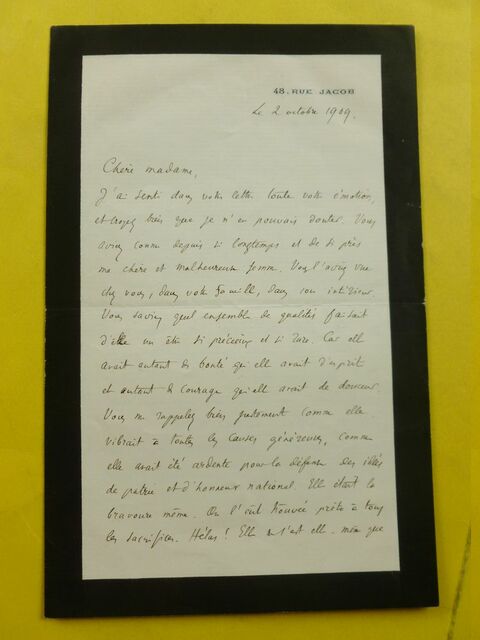 48, RUE JACOB
Le 2 octobre 1909.
Chère madame,
J'ai senti dans votre lettre toute votre émotion,
et croyez bien que je n'en pouvais douter. Vous
aviez connu depuis si longtemps et de si près
ma chère et malheureuse femme. Vous l'aviez vue
chez vous, dans votre famille, dans son intérieur.
Vous saviez quel ensemble de qualités faisait
d'elle un être si précieux et si rare. Car elle
avait autant de bonté qu'elle avait d'esprit
et autant de courage qu'elle avait de douceur.
Vous me rappelez bien justement comme elle
vibrait à toutes les causes généreuses, comme
elle avait été ardente pour la défense des idées
de patrie et d'honneur national. Elle était la
bravoure même. On l'eût trouvée prête à tous
les sacrifices. Hélas ! Elle s'est elle-même que